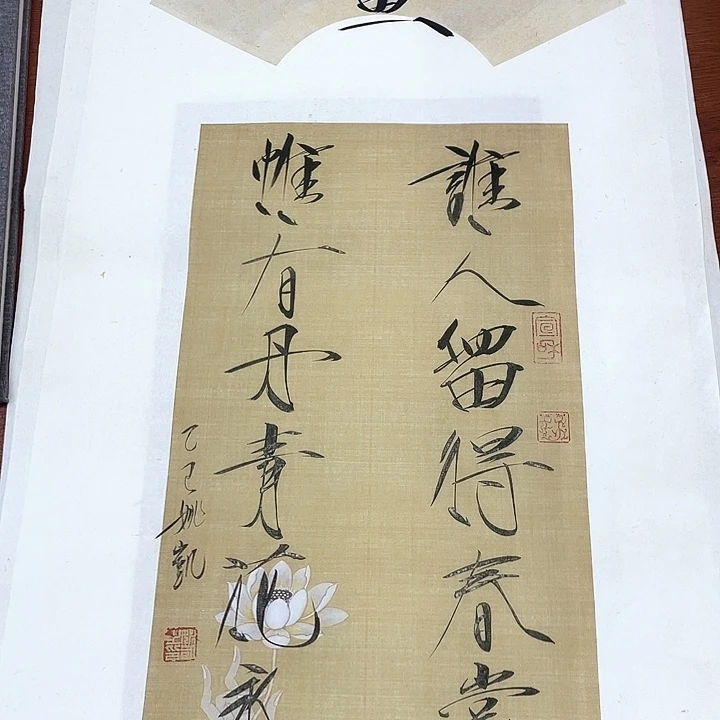 誰人留得春常
惟有丹青花永
乙巳姚凱